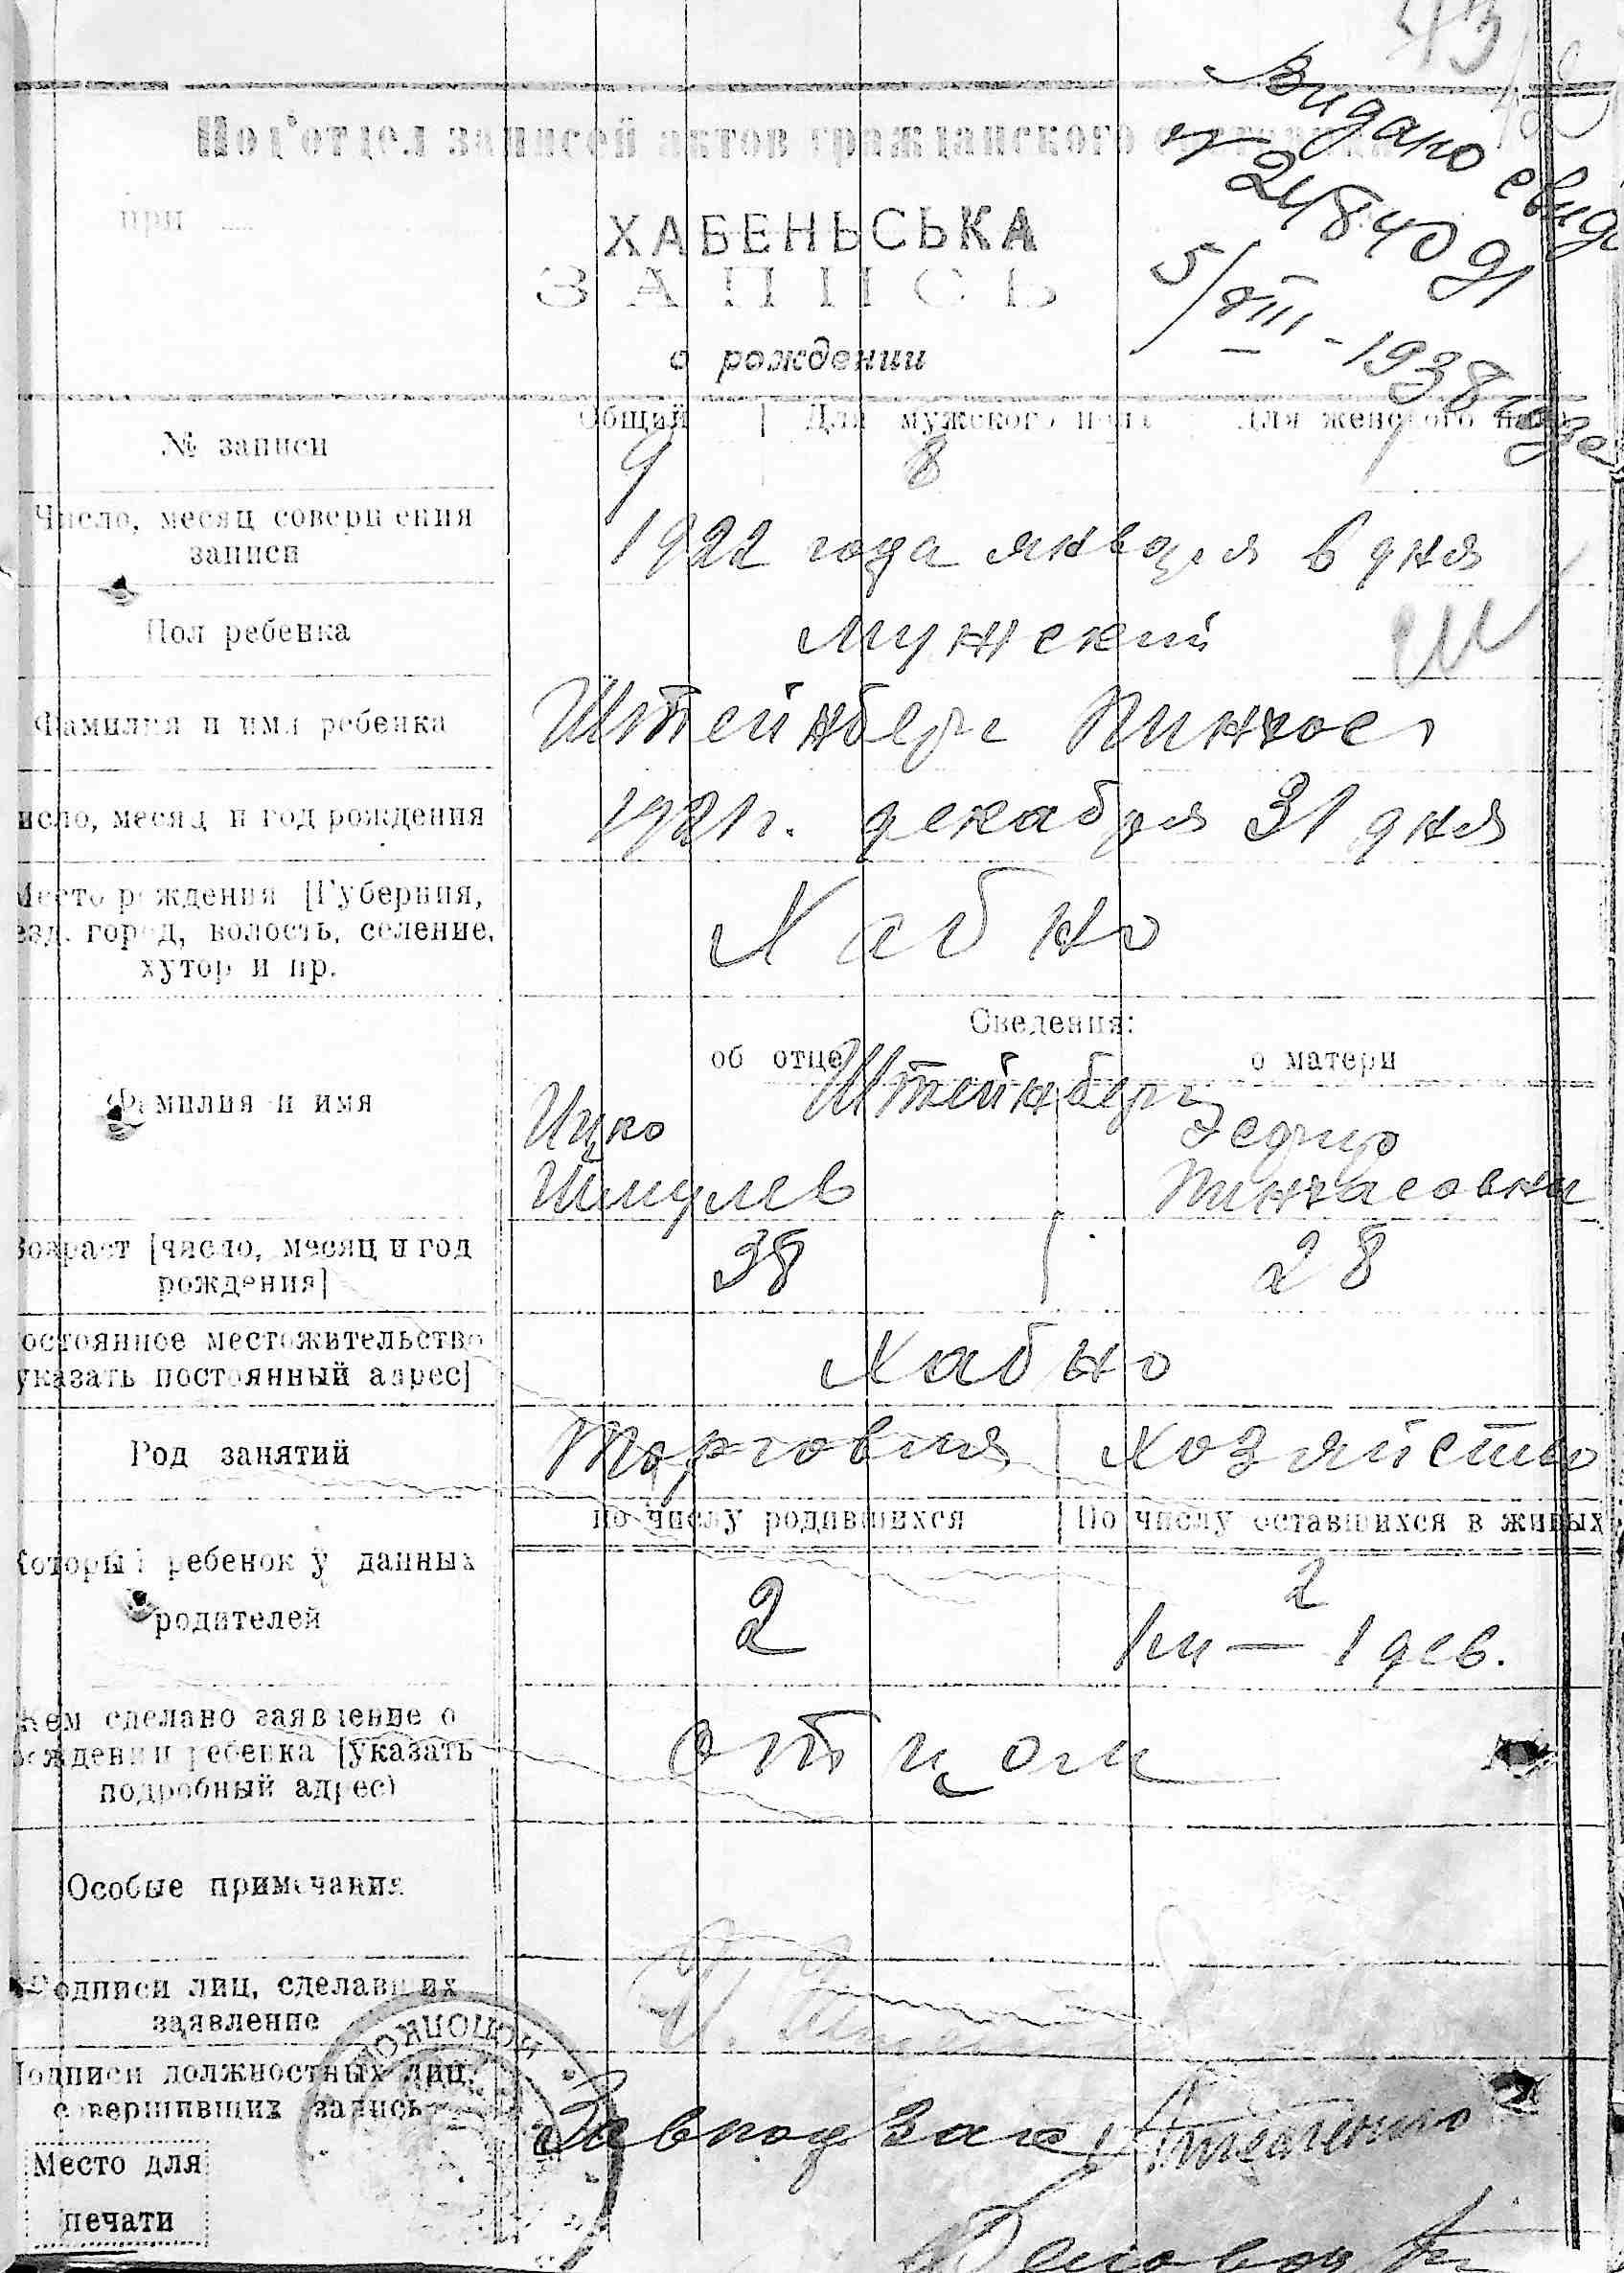 43
Видано свид
№ 24840 91
5/VIII - 1938 года
Под'отдел записей актов гражданского
при
ХАБЕНЬСЬКА
ЗАПИСЬ
о рождении
№ записи
Общий | Для мужского пола Для женского пола
9 8
Число, месяц совершения
записи
1922 года января 6 дня
Пол ребенка
мужский
Фамилия и имя ребенка
Штейнберг Пинхос
исло, месяц и год рождения
1921 г. декабря 31 дня
Место рождения [Губерния,
езд, город, волость, селение,
хутор и пр.
Хабно
Сведения:
об отце о матери
Фамилия и имя
Штейнберг
Ицко
Шмулев
Пинхасовна
Возраст [число, месяц и год
рождения]
38 28
остоянное местожительство
указать постоянный адрес]
Хабно
Род занятий
Торговля Хозяйство
по числу родившихся По числу оставшихся в живых
Который ребенок у данных
родителей
2 2
1 м — 1 дев.
Кем сделано заявление о
рождении ребенка [указать
подробный адрес)
отцом
Особые примечания
Подписи лиц, сделавших
заявление
Подписи должностных лиц,
совершивших запись
Завподзаг
Место для
печати